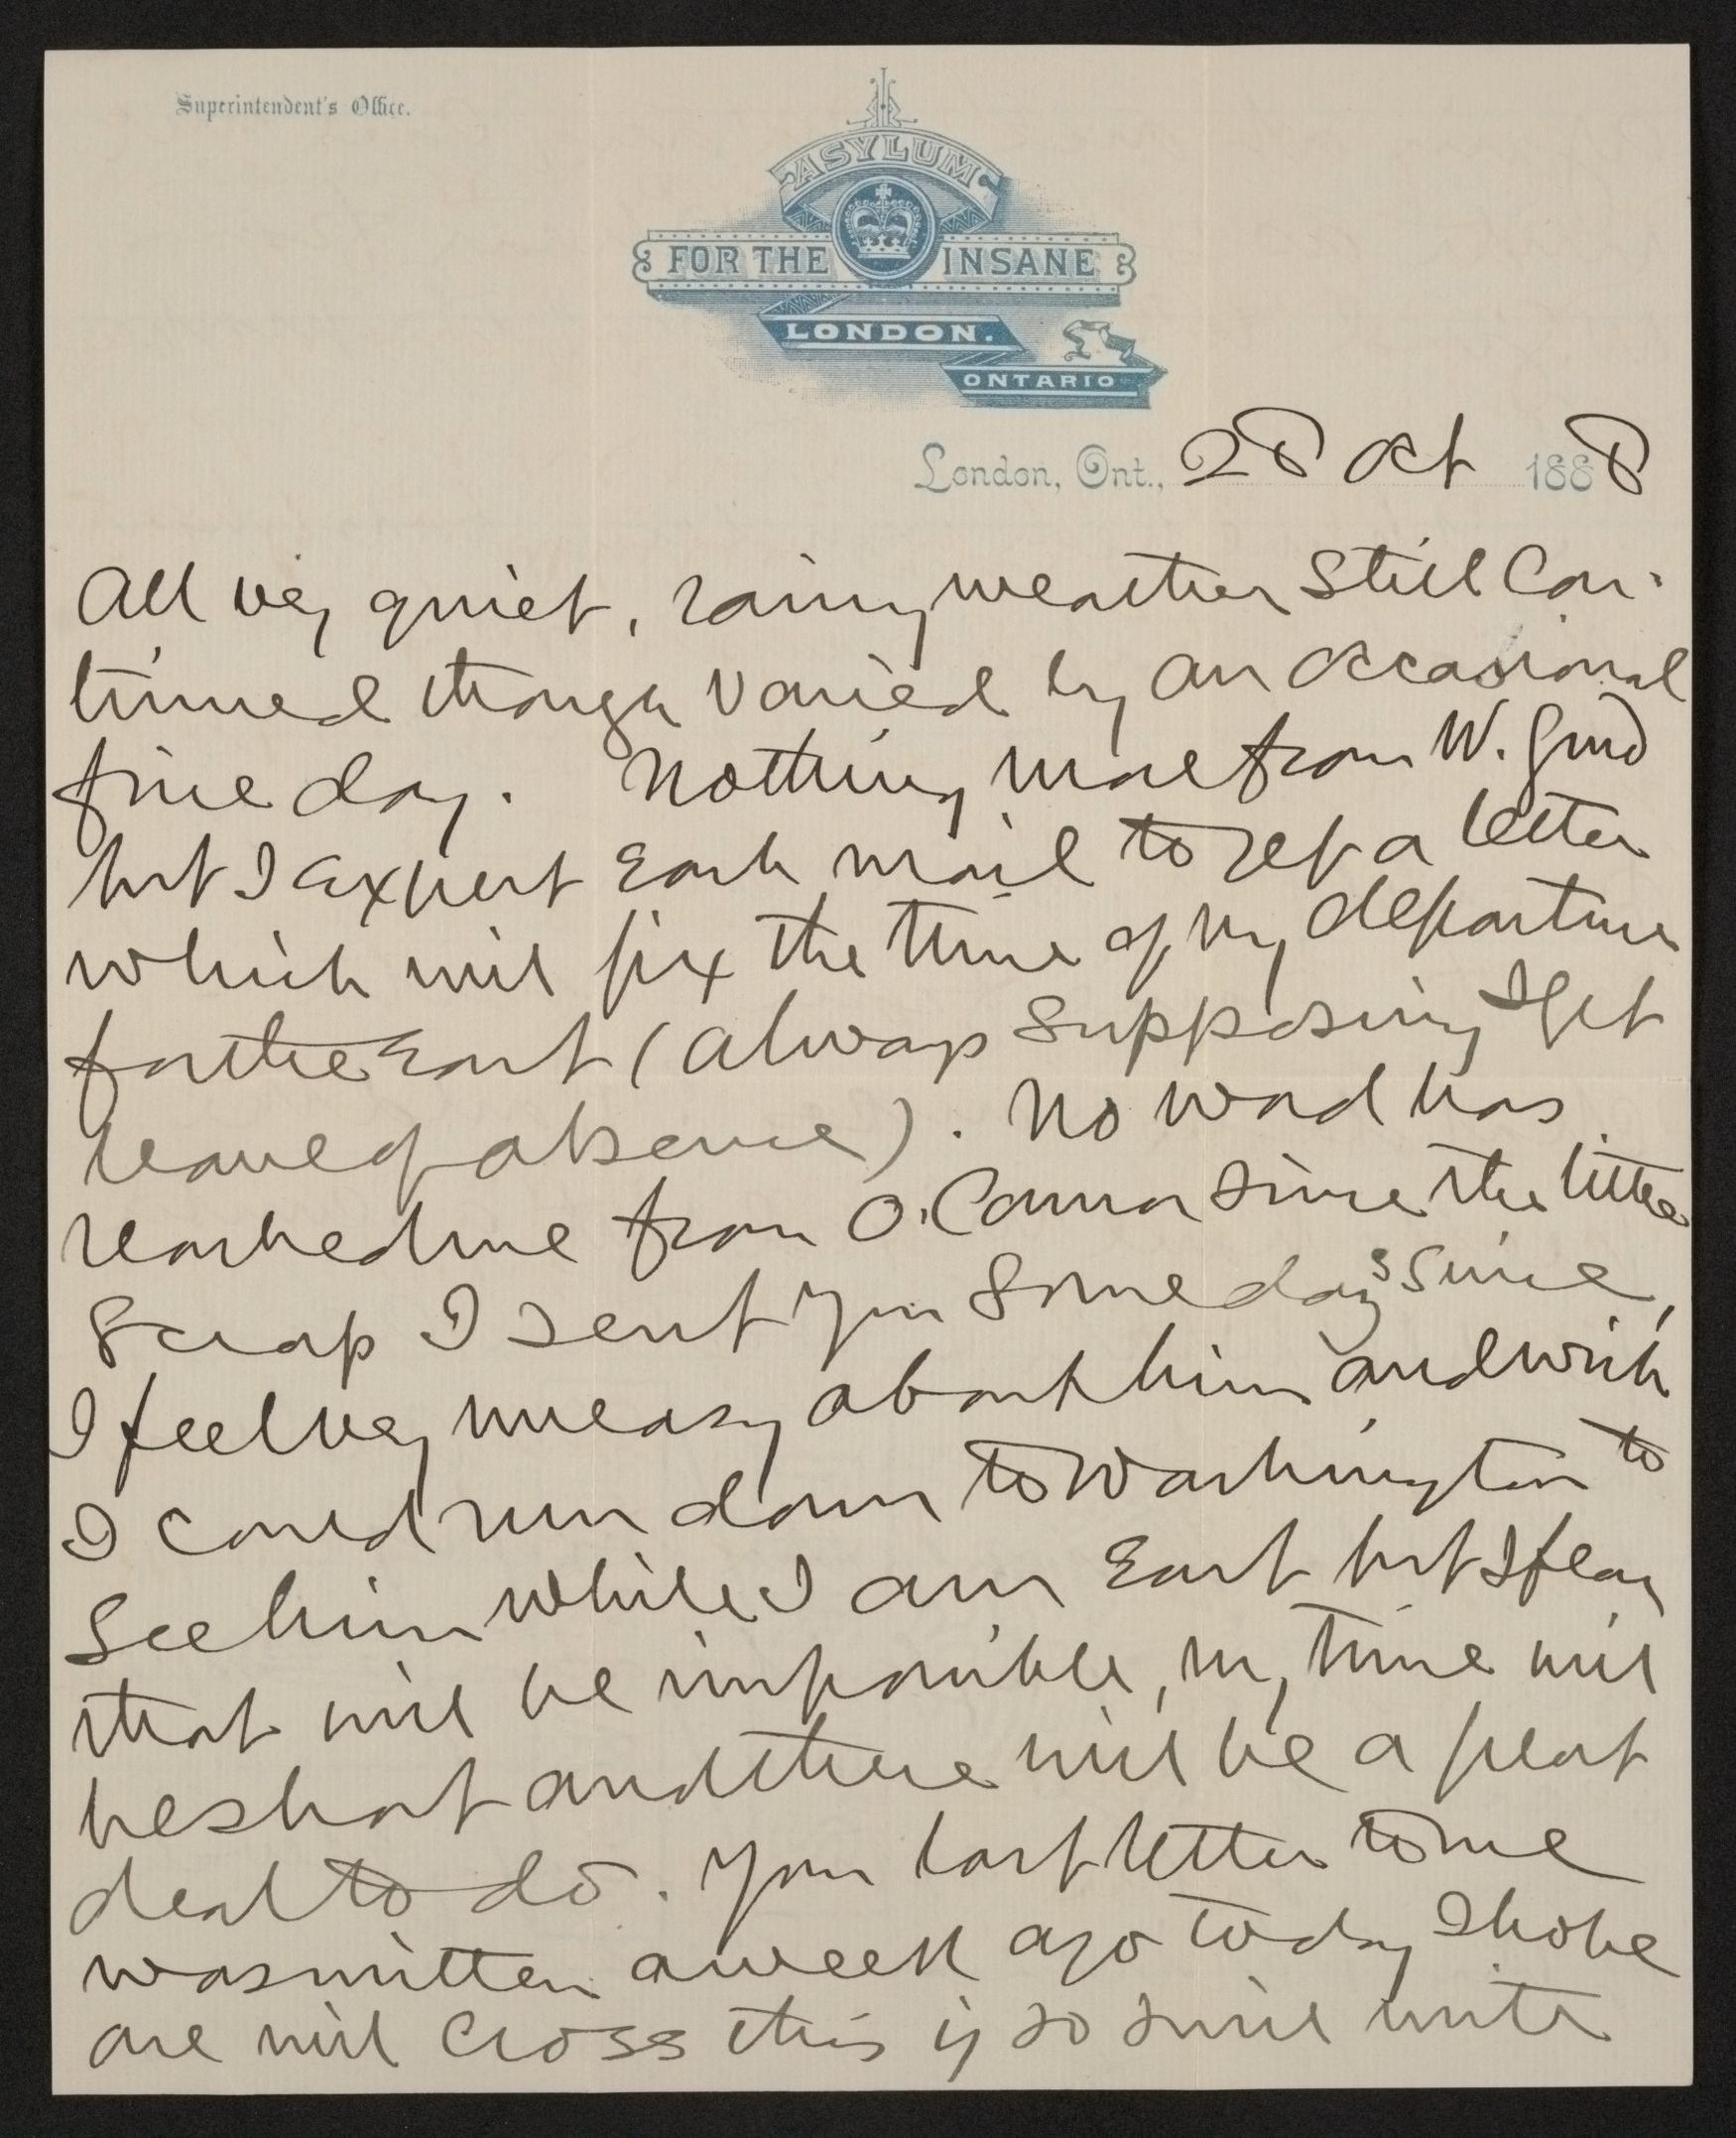 Superintendent's Office.
ASYLUM
FOR THE INSANE
LONDON.
ONTARIO
London, Ont., 28 Oct 1888
All very quiet, rainy weather still con-
tinued though varied by an occasional
fine day. Nothing more from W. Gurd
but I expect each mail to get a letter
which will fix the time of my departure
for the East (always supposing I get
leave of absence). No word has
reached me from O'Connor since the little
scrap I sent you some days since,
I feel very uneasy about him and wish
I could run down to Washington to
see him while I am East but I fear
that will be impossible, my time will
be short and there will be a great
deal to do. Your last letter to me
was written a week ago today I hope
one will cross this if so I will write